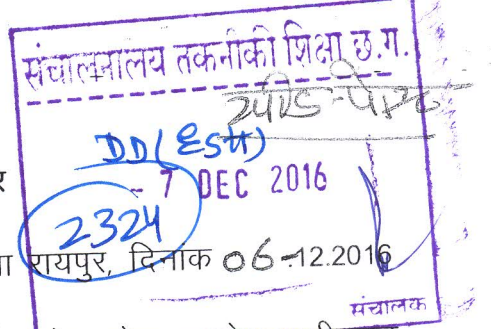 संचालनालय तकनीकी शिक्षा छ.ग.
स्पीड-पोस्ट
DD(Estt)
- 7 DEC 2016
2324
रायपुर, दिनांक 06-12.2016
संचालक